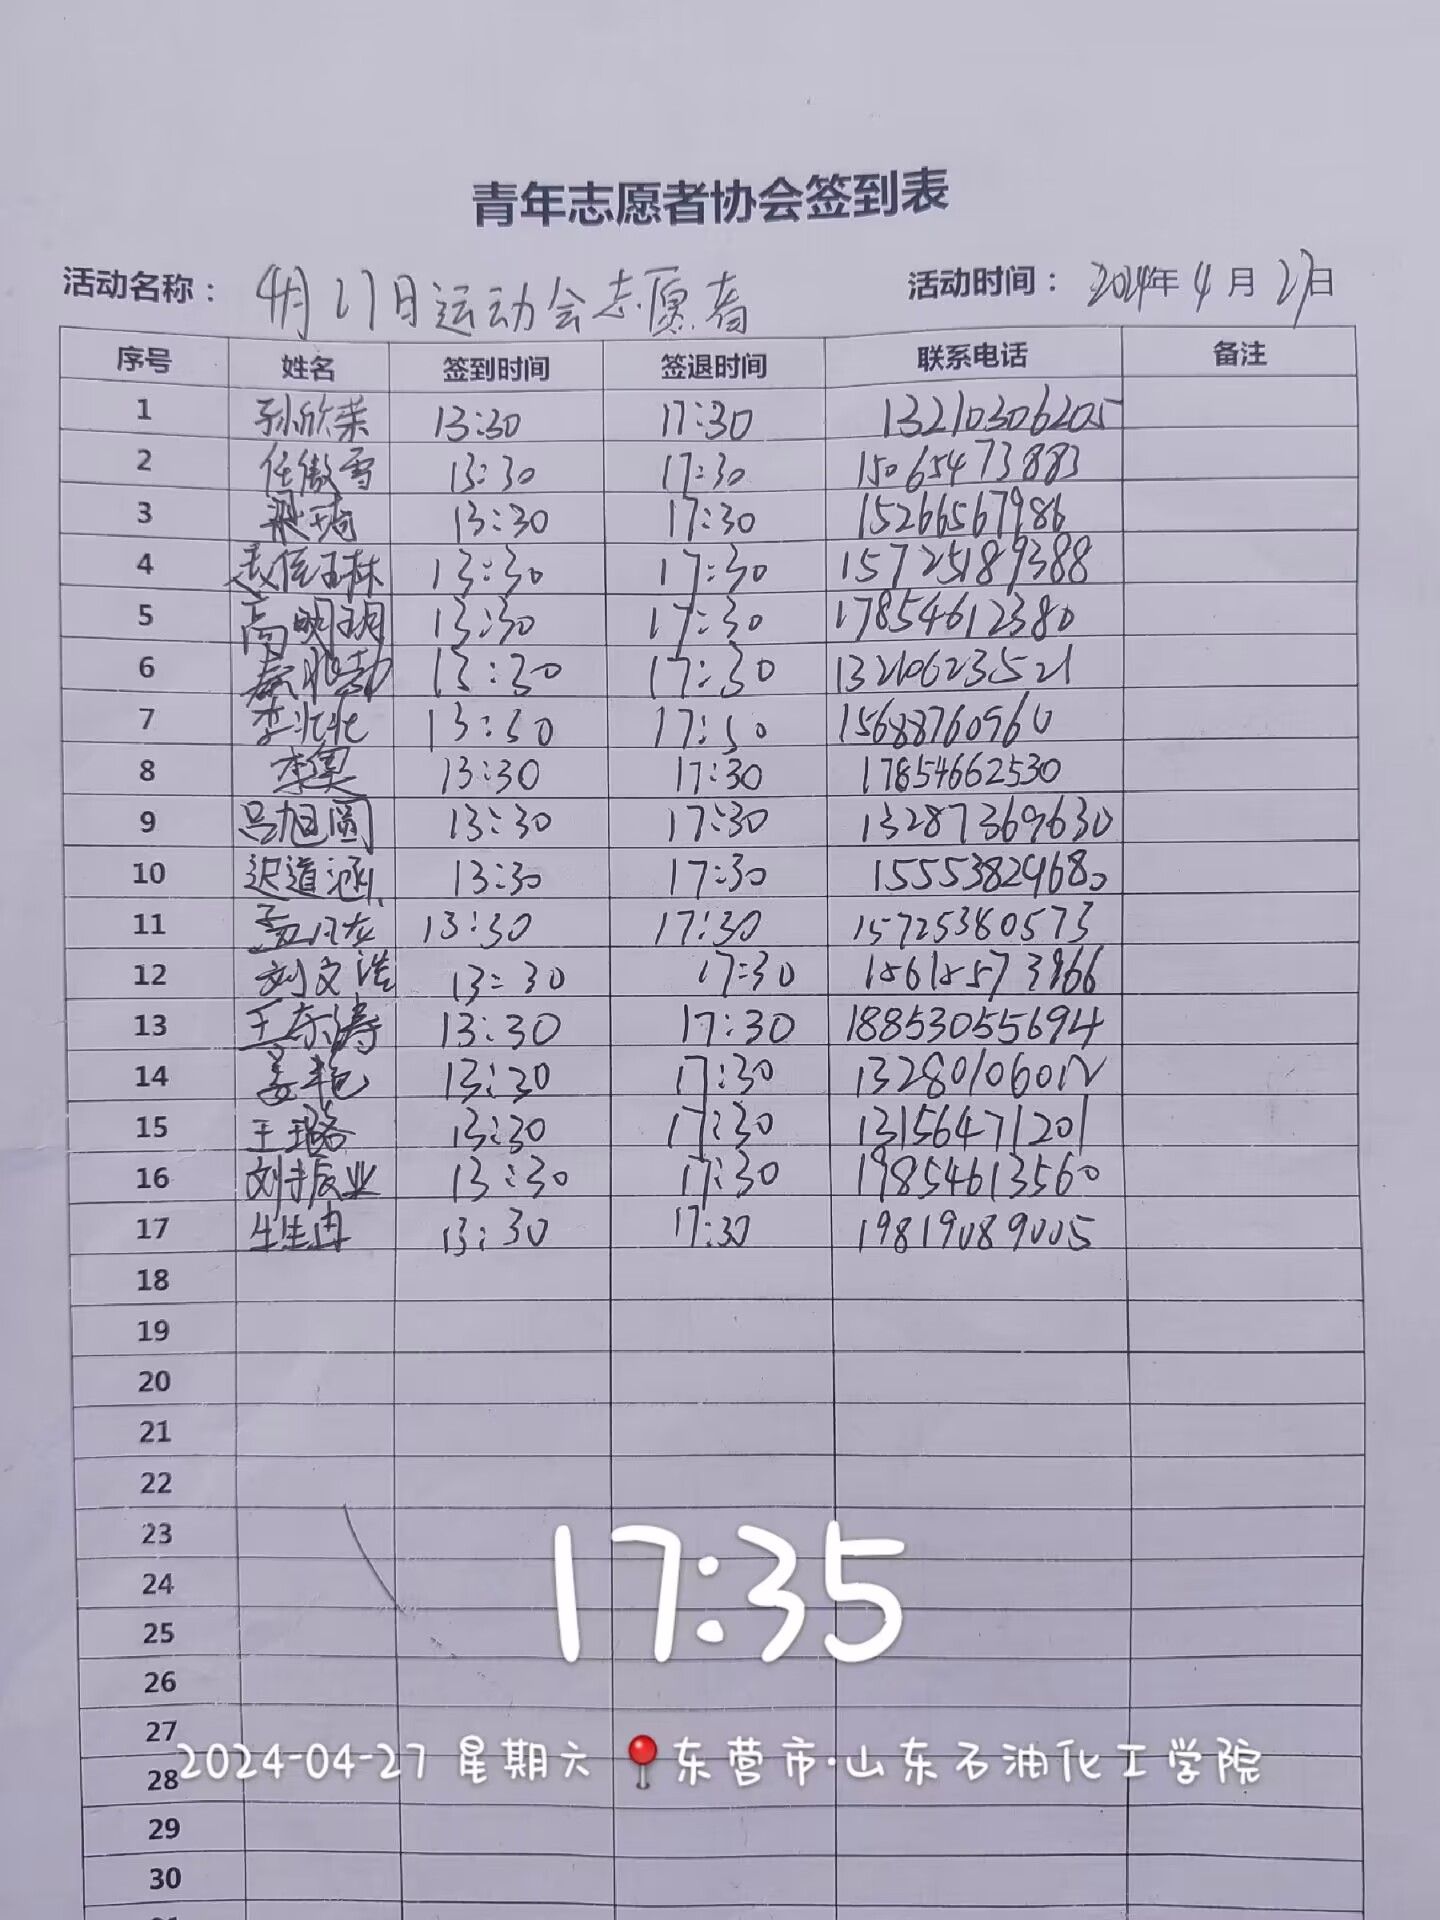 青年志愿者协会签到表
活动名称： 4月27日运动会志愿者 活动时间： 2024年 4月 27日
序号 姓名 签到时间 签退时间 联系电话 备注
1 孙欣荣 13:30 17:30 13210306205
2 任傲雪 13:30 17:30 15065473883
3 梁琦 13:30 17:30 15266567986
4 13:30 17:30 15725189388
5 高明玥 13:30 17:30 17854612380
6 秦兆勃 13:30 17:30 13210623521
7 李兆兆 13:30 17:30 15688760960
8 13:30 17:30 17854662530
9 吕旭圆 13:30 17:30 13287369630
10 迟道涵 13:30 17:30 15553829680
11 孟凡龙 13:30 17:30 15725380573
12 刘文浩 13:30 17:30
13 王东涛 13:30 17:30 18853055694
14 姜艳 13:30 17:30 13280106012
15 王璐 13:30 17:30 13156471201
16 刘振业 13:30 17:30 19854613560
17 13:30 17:30 19819089005
18
19
20
21
22
23
17:35
24
25
26
27
2024-04-27 星期六 东营市·山东石油化工学院
28
29
30